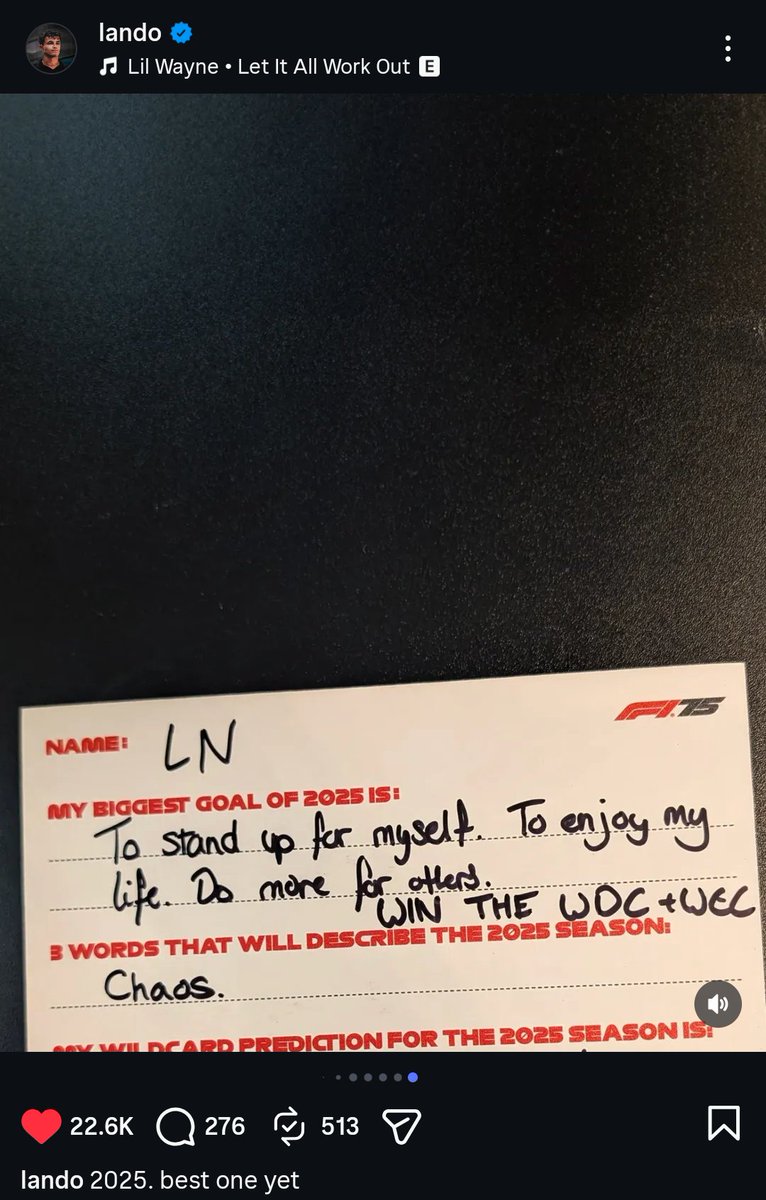 lando
Lil Wayne • Let It All Work Out E
F1.75
NAME: LN
MY BIGGEST GOAL OF 2025 IS:
To stand up for myself. To enjoy my
life. Do more for others.
WIN THE WDC + WCC
3 WORDS THAT WILL DESCRIBE THE 2025 SEASON:
Chaos.
MY WILDCARD PREDICTION FOR THE 2025 SEASON IS:
22.6K 276 513
lando 2025. best one yet